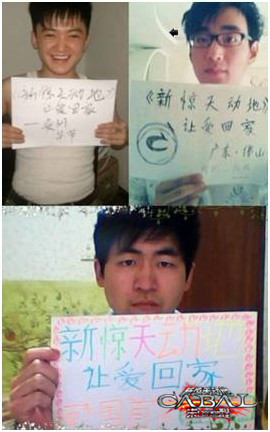 《新惊天动地》
让爱回家
《新惊天动地》
让爱回家
广东·佛山
新惊天动地
让爱回家
CABAL